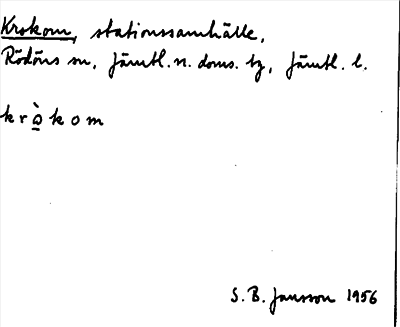 Krokom, stationssamhälle,
Rödöns sn, Jämtl. n. doms. tg, Jämtl. l.
krò̲kom
S. B. Jansson 1956